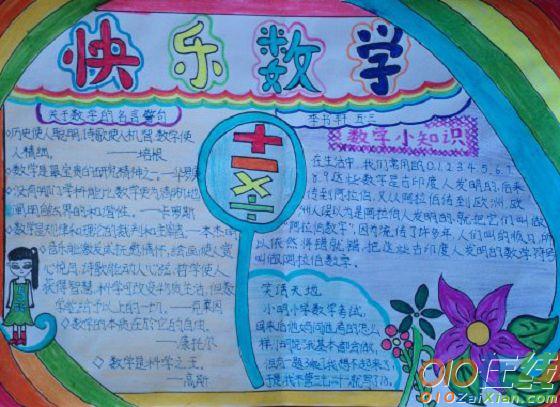 快乐数学
关于数学的名言警句
◇历史使人聪明,诗歌使人机智,数学使
人精细。 ——培根
◇数学是最宝贵的研究精神之一——华罗庚
◇没有哪门学科能比数学更为清晰地
阐明自然界的和谐性。——卡罗斯
◇数学是规律和理论的裁判和主宰者——本杰明
◇音乐能激发或抚慰情怀,绘画使人赏
心悦目,诗歌能动人心弦,哲学使人
获得智慧,科学可改变物质生活,但数
学能给予以上的一切。——克莱因
◇数学的本质在於它的自由。
——康托尔
◇数学是科学之王。
——高斯
李书轩 五三
数学小知识
在生活中,我们常用的0.1.2.3.4.5.6.7.
8.9这些数字是古印度人发明的,后来
传到阿拉伯,又从阿拉伯传到欧洲,欧
洲人误以为是阿拉伯人发明的,就把它们叫做
“阿拉伯数字”,因为流传了许多年,人们叫的惯口,所
以依然将错就错,把这些古印度人发明的数字符号
叫做阿拉伯数字。
笑话天地
小明小学数学考试,
回来后他妈问他考的怎么
样,小明说:基本都会做,
但有一题3乘7我想不起来了,
于是我不管三七二十一就写了18。
010在线
010ZaiXian.com